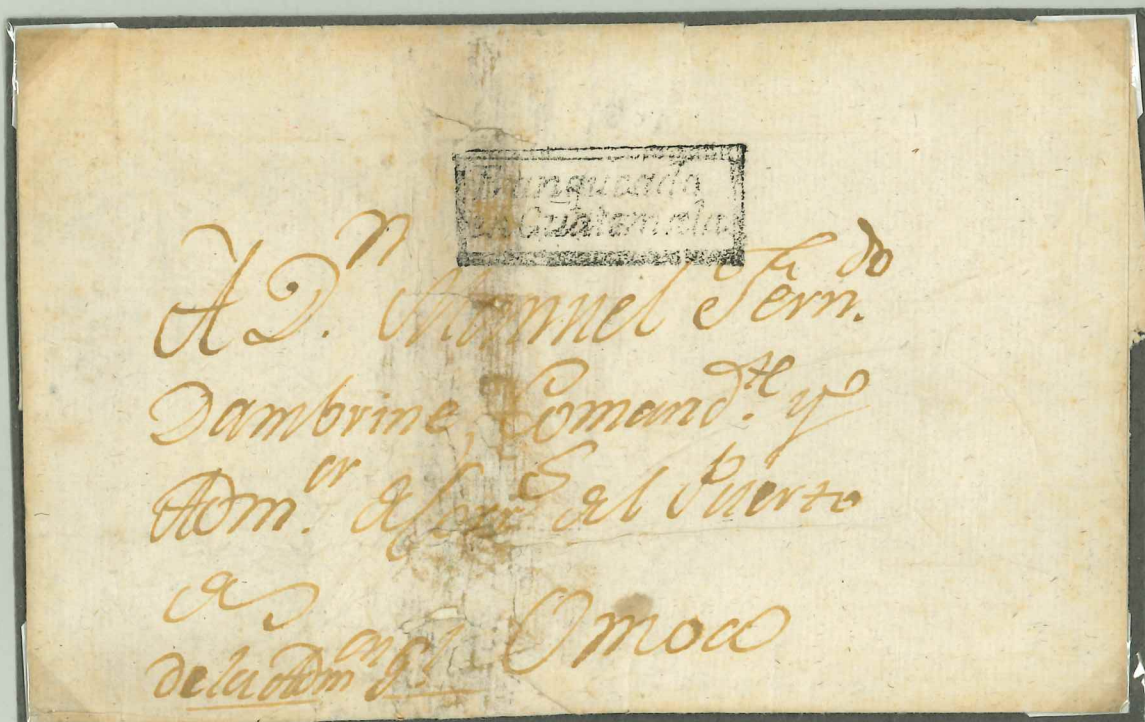 Franqueado
en Guatemala
A D.n Manuel Fern.do
Dambrine, Comand.te y
Adm.or de Corr.s del Puerto
de
Omoa
de la Adm.on Gl.